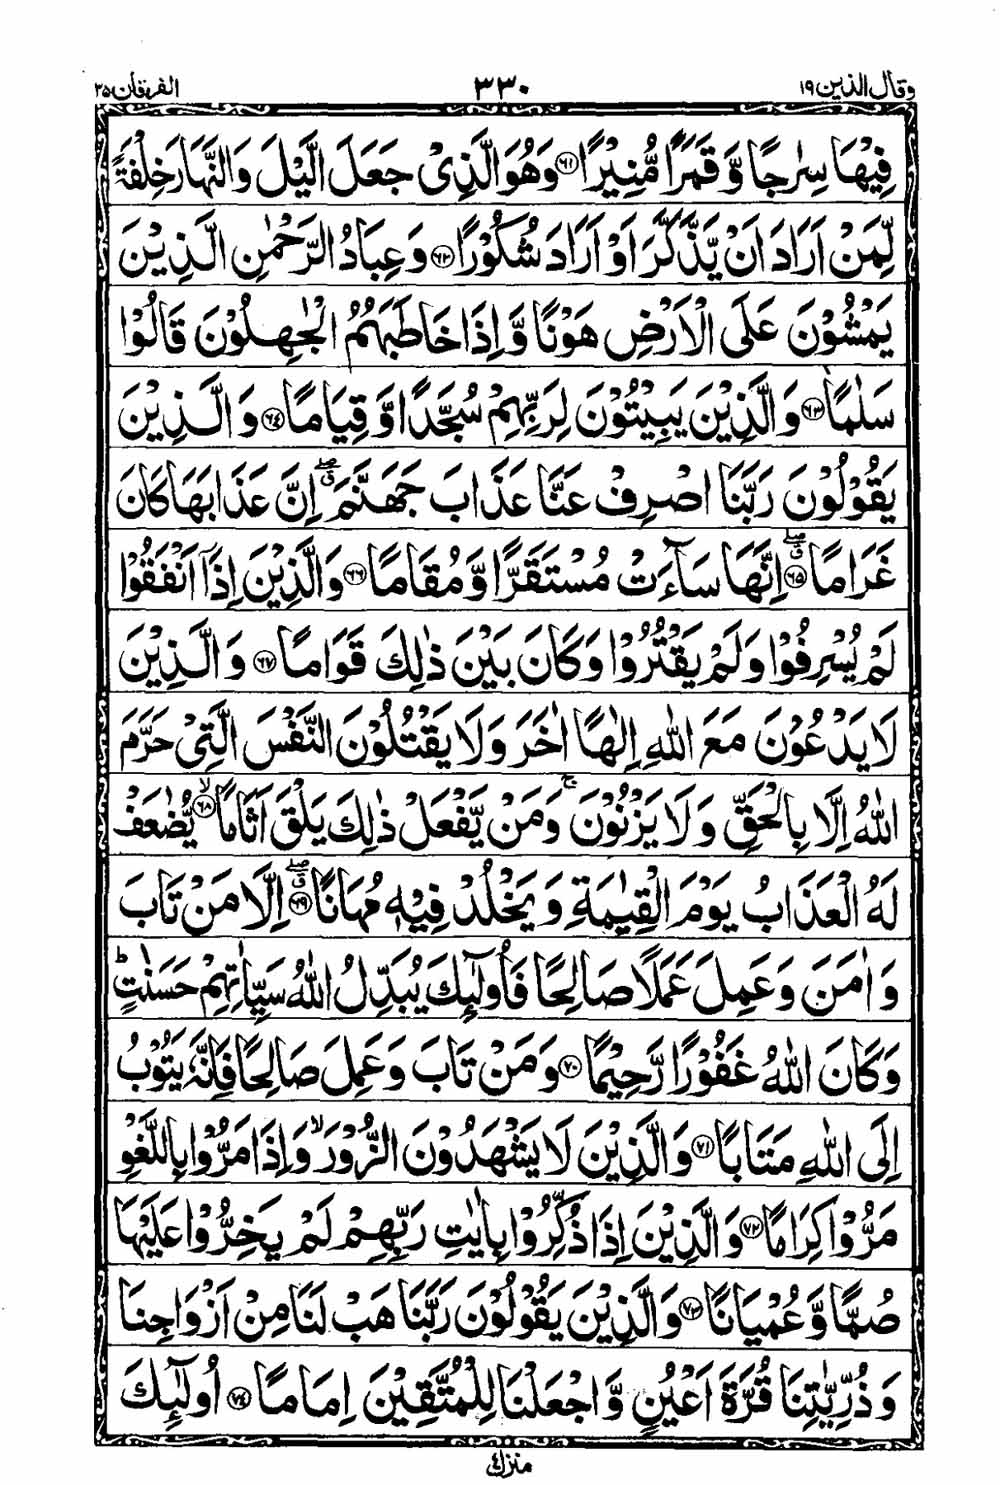 وقال الذین ۱۹ ۳۳۰ الفرقان ۲۵
فِیْهَا سِرٰجًا وَّ قَمَرًا مُّنِیْرًا ﴿۶۱﴾ وَهُوَ الَّذِیْ جَعَلَ الَّیْلَ وَ النَّهَارَ خِلْفَةً
لِّمَنْ اَرَادَ اَنْ یَّذَّكَّرَ اَوْ اَرَادَ شُكُوْرًا ﴿۶۲﴾ وَ عِبَادُ الرَّحْمٰنِ الَّذِیْنَ
یَمْشُوْنَ عَلَی الْاَرْضِ هَوْنًا وَّ اِذَا خَاطَبَهُمُ الْجٰهِلُوْنَ قَالُوْا
سَلٰمًا ﴿۶۳﴾ وَ الَّذِیْنَ یَبِیْتُوْنَ لِرَبِّهِمْ سُجَّدًا وَّ قِیَامًا ﴿۶۴﴾ وَ الَّذِیْنَ
یَقُوْلُوْنَ رَبَّنَا اصْرِفْ عَنَّا عَذَابَ جَهَنَّمَ ۖق اِنَّ عَذَابَهَا كَانَ
غَرَامًا ﴿۶۵﴾ ۖق اِنَّهَا سَآءَتْ مُسْتَقَرًّا وَّ مُقَامًا ﴿۶۶﴾ وَ الَّذِیْنَ اِذَاۤ اَنْفَقُوْا
لَمْ یُسْرِفُوْا وَ لَمْ یَقْتُرُوْا وَ كَانَ بَیْنَ ذٰلِكَ قَوَامًا ﴿۶۷﴾ وَ الَّذِیْنَ
لَا یَدْعُوْنَ مَعَ اللّٰهِ اِلٰهًا اٰخَرَ وَ لَا یَقْتُلُوْنَ النَّفْسَ الَّتِیْ حَرَّمَ
اللّٰهُ اِلَّا بِالْحَقِّ وَ لَا یَزْنُوْنَ ۚ وَ مَنْ یَّفْعَلْ ذٰلِكَ یَلْقَ اَثَامًا ﴿۶۸﴾ ۙ یُّضٰعَفْ
لَهُ الْعَذَابُ یَوْمَ الْقِیٰمَةِ وَ یَخْلُدْ فِیْهٖ مُهَانًا ﴿۶۹﴾ ۖق اِلَّا مَنْ تَابَ
وَ اٰمَنَ وَ عَمِلَ عَمَلًا صَالِحًا فَاُولٰٓىِٕكَ یُبَدِّلُ اللّٰهُ سَیِّاٰتِهِمْ حَسَنٰتٍ ؕ
وَ كَانَ اللّٰهُ غَفُوْرًا رَّحِیْمًا ﴿۷۰﴾ وَ مَنْ تَابَ وَ عَمِلَ صَالِحًا فَاِنَّهٗ یَتُوْبُ
اِلَی اللّٰهِ مَتَابًا ﴿۷۱﴾ وَ الَّذِیْنَ لَا یَشْهَدُوْنَ الزُّوْرَ ۙ وَ اِذَا مَرُّوْا بِاللَّغْوِ
مَرُّوْا كِرَامًا ﴿۷۲﴾ وَ الَّذِیْنَ اِذَا ذُكِّرُوْا بِاٰیٰتِ رَبِّهِمْ لَمْ یَخِرُّوْا عَلَیْهَا
صُمًّا وَّ عُمْیَانًا ﴿۷۳﴾ وَ الَّذِیْنَ یَقُوْلُوْنَ رَبَّنَا هَبْ لَنَا مِنْ اَزْوَاجِنَا
وَ ذُرِّیّٰتِنَا قُرَّةَ اَعْیُنٍ وَّ اجْعَلْنَا لِلْمُتَّقِیْنَ اِمَامًا ﴿۷۴﴾ اُولٰٓىِٕكَ
منزل ۴